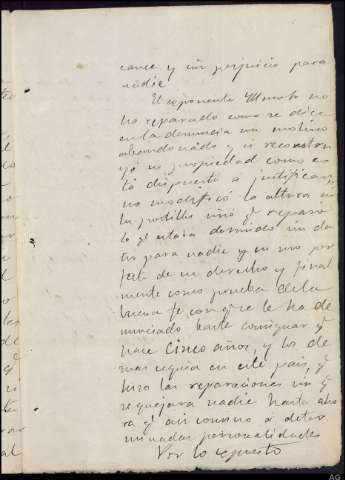 cance y sin perjuicio para
nadie
El exponente Muerto no
ha reparado como se dice
en la denuncia un molino
abandonado, y si reconstru
yó su propiedad como es
tá dispuesto a justificar,
no modificó la altura ni
la portilla sino q.e reparó
lo q.e estaba derruido sin da
ño para nadie y en uso per
fecto de su derecho y final
mente como prueba de la
buena fe con q.e se le ha de
nunciado baste consignar q.e
hace cinco años, y los de
mas sequia en este pais, q.e
hizo las reparaciones sin q.e
se quejara nadie hasta aho
ra q.e asi convino a deter
minadas personalidades
Por lo expuesto